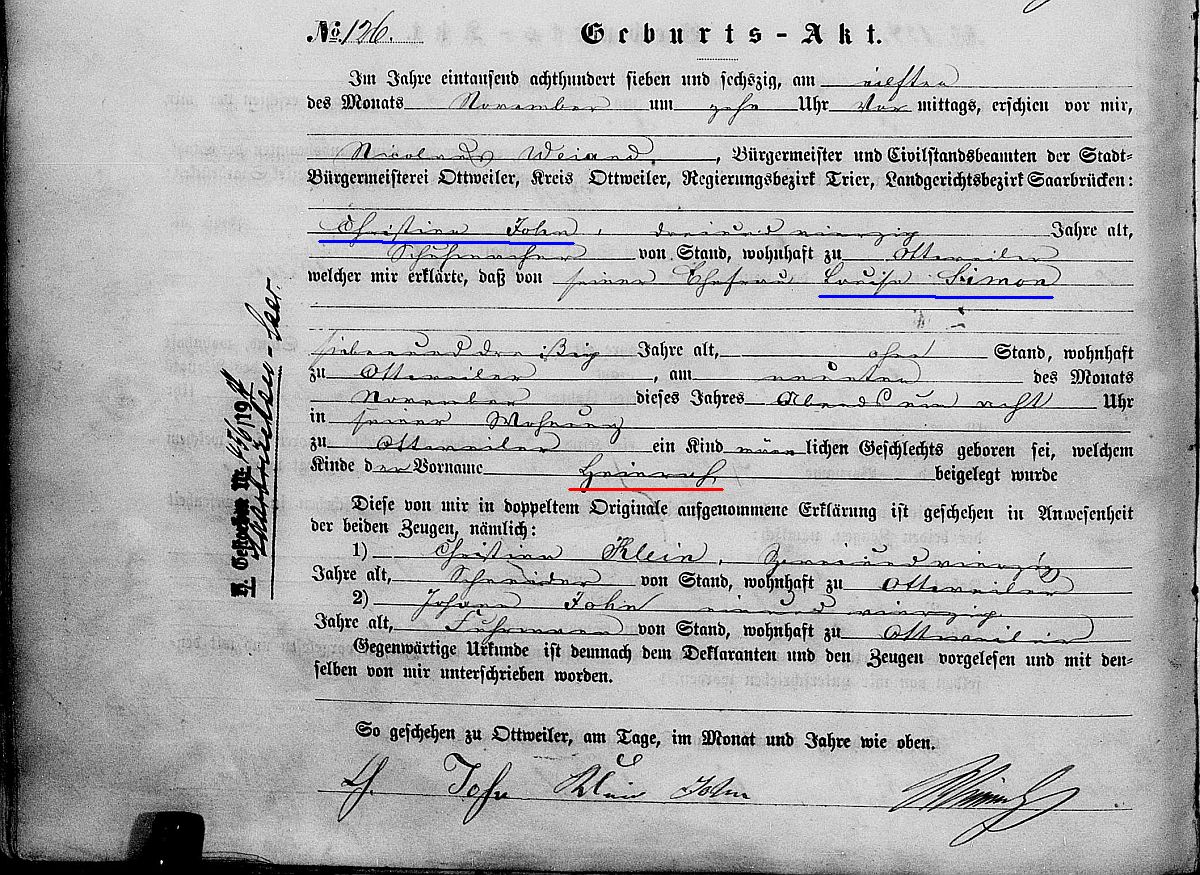 No. 126. Geburts-Akt.
Im Jahre eintausend achthundert sieben und sechszig, am eilften
des Monats November um zehn Uhr Vor mittags, erschien vor mir,
Nicolaus Weiand, Bürgermeister und Civilstandsbeamten der Stadt-
Bürgermeisterei Ottweiler, Kreis Ottweiler, Regierungsbezirk Trier, Landgerichtsbezirk Saarbrücken:
Christian John, dreiundvierzig Jahre alt,
Schuhmacher von Stand, wohnhaft zu Ottweiler
welcher mir erklärte, daß von seiner Ehefrau Louise Simon
siebenunddreißig Jahre alt, ohne Stand, wohnhaft
zu Ottweiler, am neunten des Monats
November dieses Jahres Abends um acht Uhr
in seiner Wohnung
zu Ottweiler ein Kind männlichen Geschlechts geboren sei, welchem
Kinde der Vorname Heinrich beigelegt wurde
Diese von mir in doppeltem Originale aufgenommene Erklärung ist geschehen in Anwesenheit
der beiden Zeugen, nämlich:
1) Christian Klein, zweiundvierzig
Jahre alt, Schneider von Stand, wohnhaft zu Ottweiler
2) Johann John einundvierzig
Jahre alt, Fuhrmann von Stand, wohnhaft zu Ottweiler
Gegenwärtige Urkunde ist demnach dem Deklaranten und den Zeugen vorgelesen und mit den-
selben von mir unterschrieben worden.
So geschehen zu Ottweiler, am Tage, im Monat und Jahre wie oben.
Ch. John Klein John
H. Gestorben